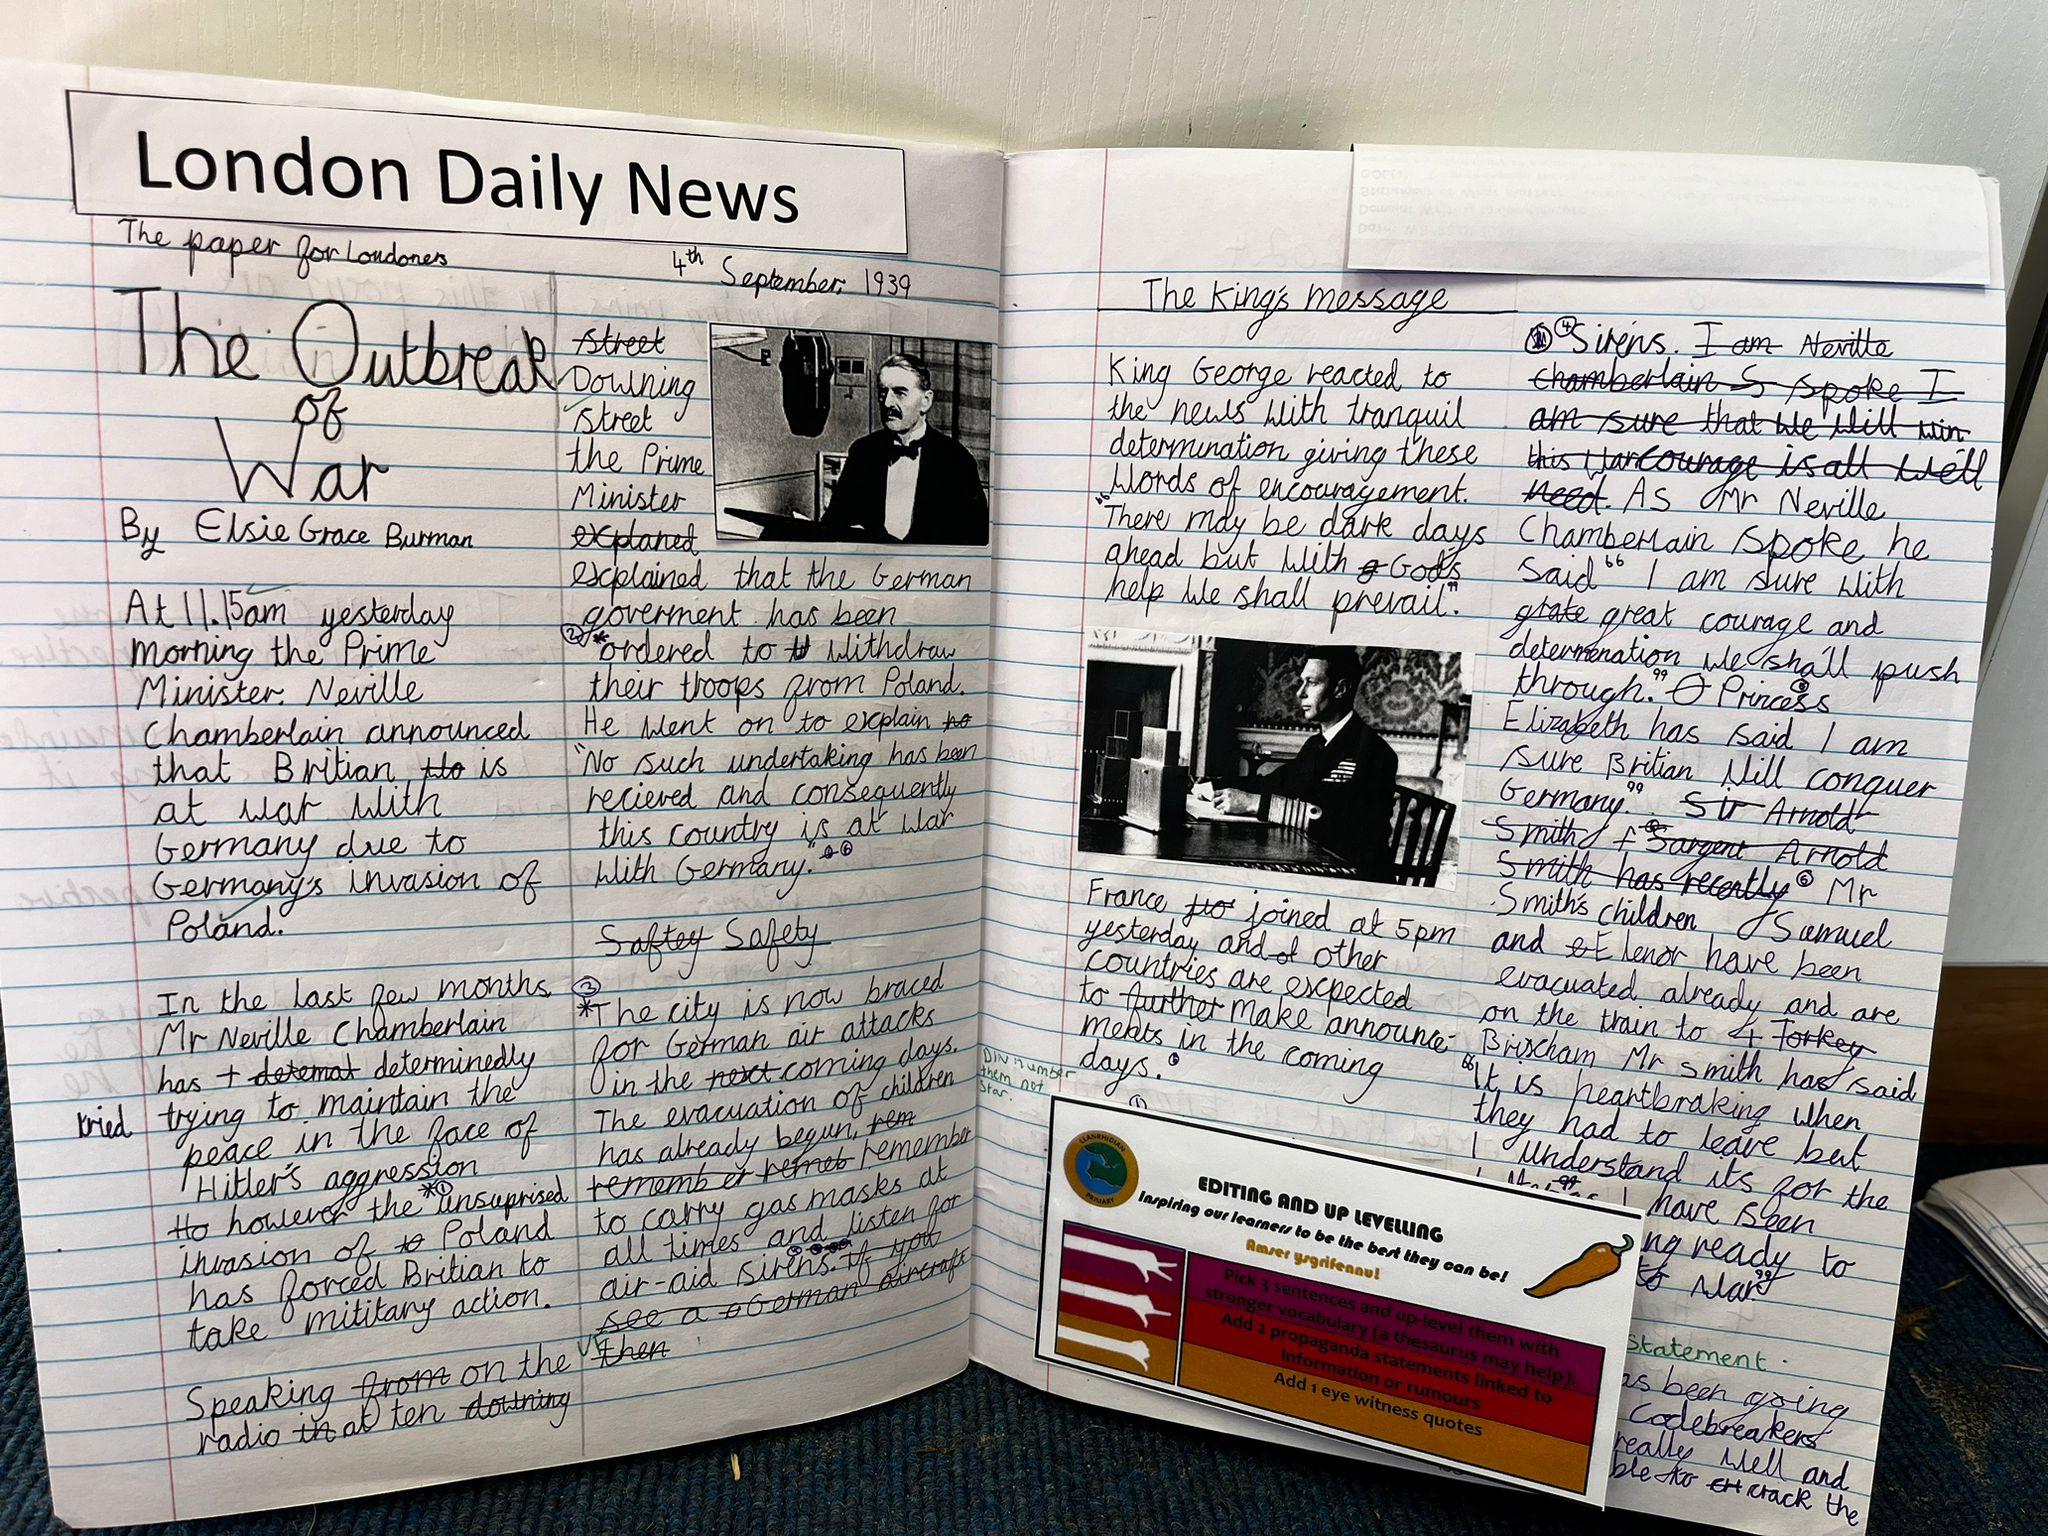 London Daily News
The paper for Londoners
4th September, 1939
The Outbreak
of
War
By Elsie Grace Burman
At 11.15am yesterday
morning the Prime
Minister. Neville
Chamberlain announced
that Britian to is
at war with
Germany due to
Germany's invasion of
Poland.
In the last few months
Mr Neville Chamberlain
has t detemat determinedly
tried
trying to maintain the
peace in the face of
Hitler's aggression
to however the *① unsuprised
invasion of to Poland
has forced Britian to
take military action.
Speaking from on the
radio in at ten downing
street
Downing
street
the Prime
Minister
explaned
explained that the German
goverment has been
② *ordered to w withdraw
their troops from Poland.
He went on to explain no
"No such undertaking has been
recieved and consequently
this country is at war
with Germany."
Saftey Safety
③
*The city is now braced
for German air attacks
in the next coming days.
The evacuation of children
has already begun, rem
remember remeb remember
to carry gas masks at
all times and listen for
air-aid sirens. If you
see a German aircraft
VF then
The King's message
King George reacted to
the news with tranquil
determination giving these
words of encouragement.
"There may be dark days
ahead but with g God's
help we shall prevail."
France joined at 5pm
yesterday and of other
countries are expected
to further make announce-
ments in the coming
days.
①
DIN number
them not
star.
④ Sirens. I am Neville
Chamberlain S spoke I
am sure that we will win
this war courage is all we'll
need. As Mr Neville
Chamberlain spoke he
said " I am sure with
grate great courage and
determenation we shall push
through." Princess
Elizabeth has said I am
sure Britian will conquer
Germany." Sir Arnold
Smith Sargent Arnold
Smith has recently ⑥ Mr
Smith's children Samuel
and Elenor have been
evacuated already and are
on the train to Torkey
Brixham Mr Smith has said
"It is heartbraking when
they had to leave but
I understand its for the
I have been
ng ready to
to war"
statement.
as been going
Codebreakers
really well and
ble to crack the
LLANRHIDIAN
PRIMARY
EDITING AND UP LEVELLING
Inspiring our learners to be the best they can be!
Amser ysgrifennu!
Pick 3 sentences and up-level them with
stronger vocabulary (a thesaurus may help).
Add 2 propaganda statements linked to
information or rumours
Add 1 eye witness quotes